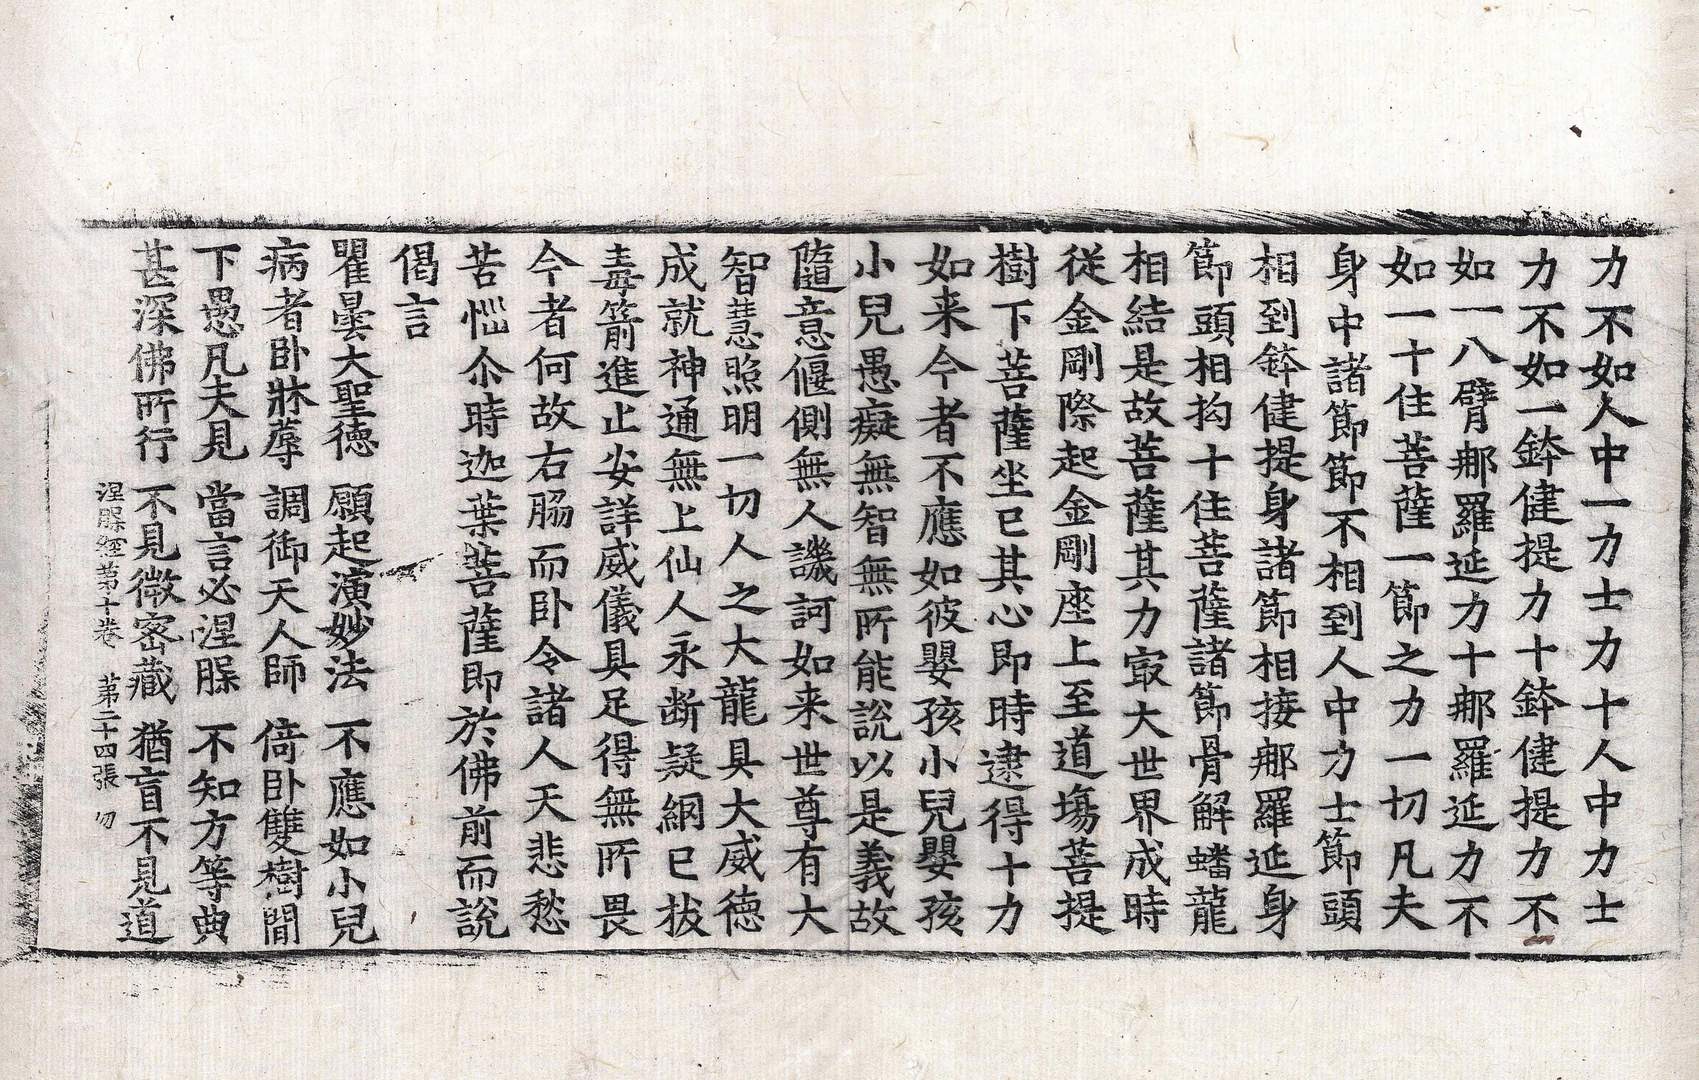 力不如人中一力士力十人中力士
力不如一鉢健提力十鉢健提力不
如一八臂那羅延力十那羅延力不
如一十住菩薩一節之力一切凡夫
身中諸節節不相到人中力士節頭
相到鉢健提身諸節相接那羅延身
節頭相拘十住菩薩諸節骨解蟠龍
相結是故菩薩其力㝡大世界成時
従金剛際起金剛座上至道塲菩提
樹下菩薩坐已其心即時逮得十力
如来今者不應如彼嬰孩小兒嬰孩
小兒愚癡無智無所能說以是義故
隨意偃側無人譏訶如来世尊有大
智慧照明一切人之大龍具大威德
成就神通無上仙人永断疑網已拔
毒箭進止安詳威儀具足得無所畏
今者何故右脇而卧令諸人天悲愁
苦惱尒時迦葉菩薩即於佛前而說
偈言
瞿曇大聖德 願起演妙法 不應如小兒
病者卧牀蓐 調御天人師 倚卧雙樹間
下愚凡夫見 當言必涅槃 不知方等典
甚深佛所行 不見微密藏 猶盲不見道
涅槃經第十卷 第二十四張 㓛